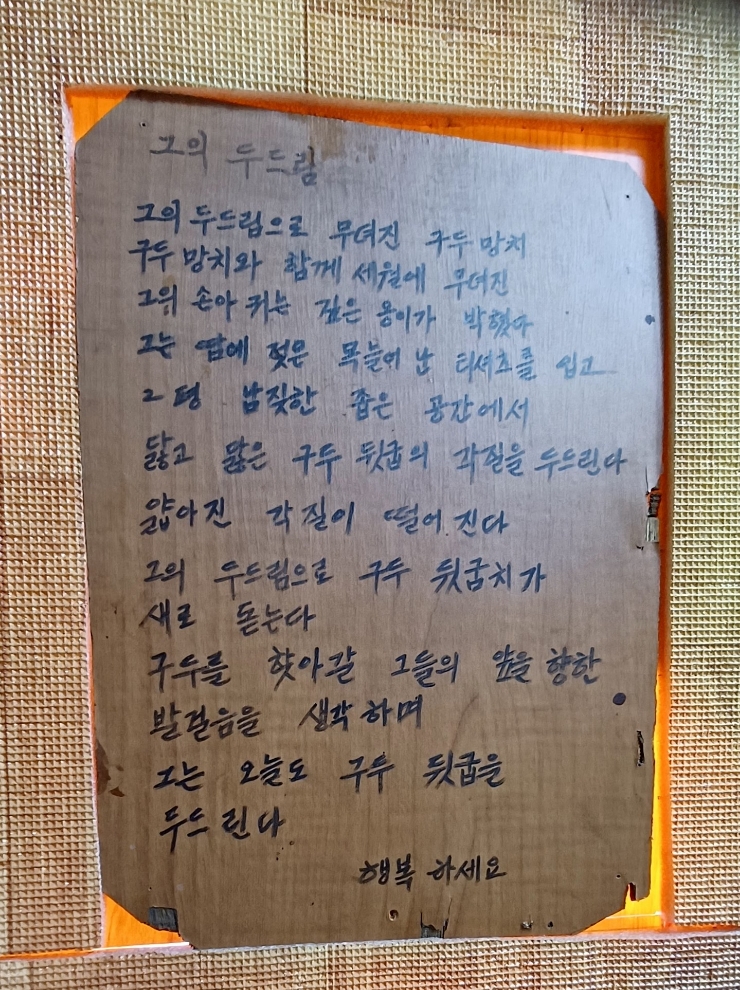 그의 두드림
그의 두드림으로 무뎌진 구두 망치
구두 망치와 함께 세월에 무뎌진
그의 손아귀는 깊은 옹이가 박혔다
그는 땀에 젖은 목늘어난 티셔츠를 입고
2평 남짖한 좁은 공간에서
닳고 닳은 구두 뒷굽의 각질을 두드린다
얇아진 각질이 떨어진다
그의 두드림으로 구두 뒷굽치가
새로 돋는다
구두를 찾아갈 그들의 앞을 향한
발걸음을 생각하며
그는 오늘도 구두 뒷굽을
두드린다
행복하세요